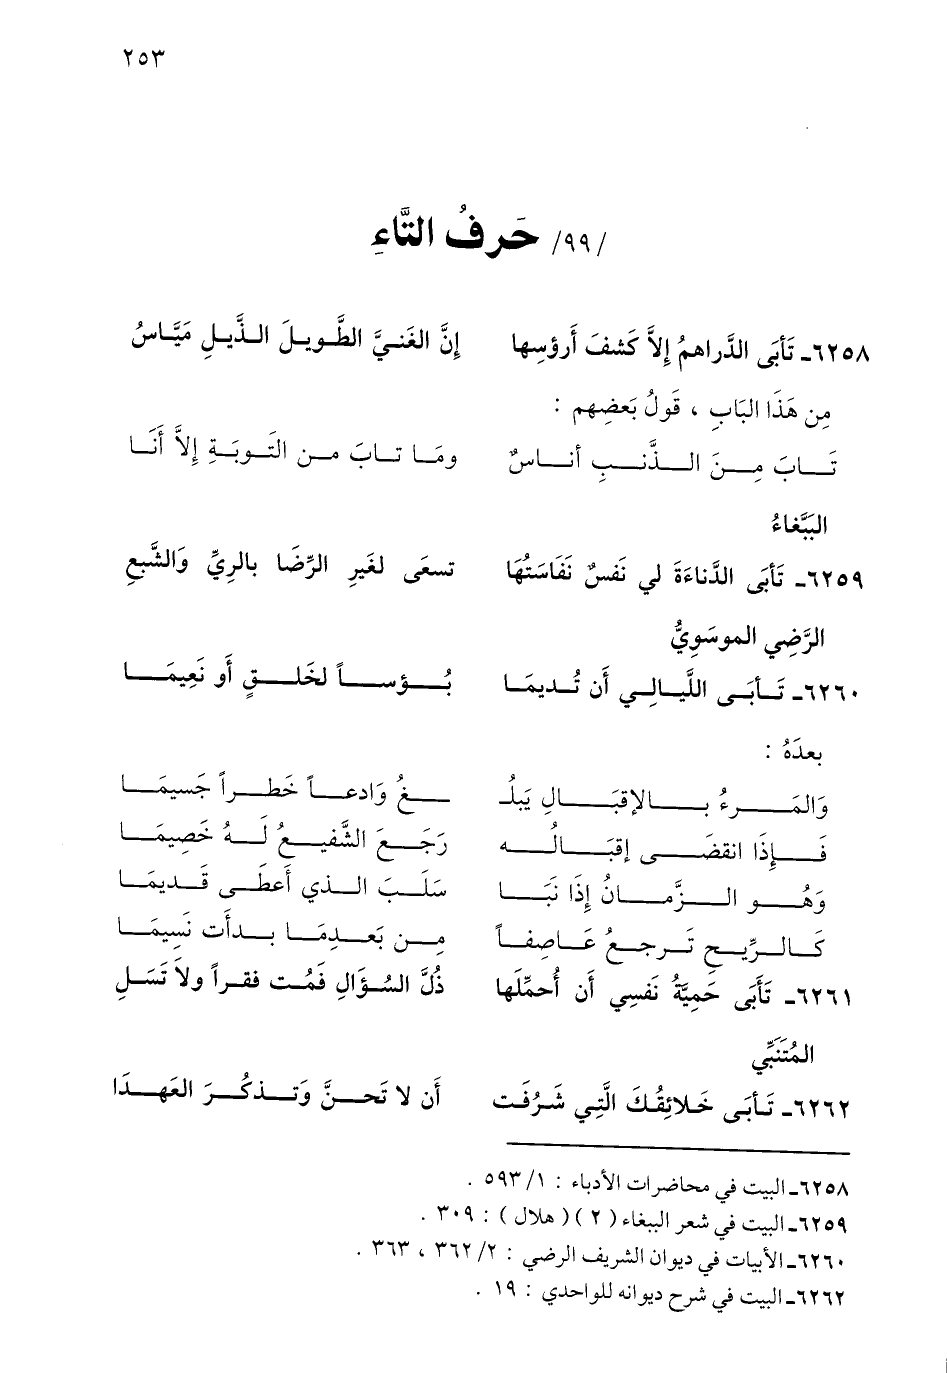 ٢٥٣
/٩٩/ حَرفُ التَّاءِ
٦٢٥٨ـ تَأبَى الدَّراهمُ إلاَّ كَشفَ أَرؤسِها إنَّ الغَنيَّ الطَّويلَ الذَّيلِ مَيَّاسُ
مِن هَذَا البَابِ ، قَولُ بَعضِهم :
تَابَ مِنَ الذَّنبِ أناسٌ ومَا تابَ من التَوبَةِ إلاَّ أَنَا
البَبَّغاءُ
٦٢٥٩ـ تَأبَى الدَّناءَةَ لي نَفسٌ نَفَاسَتُهَا تسعَى لغَيرِ الرِّضَا بالرِيِّ وَالشَّبعِ
الرَّضِي الموسَوِيُّ
٦٢٦٠ـ تَأبَى اللَّيالِي أَن تُديمَا بُؤساً لخَلقٍ أَو نَعِيمَا
بعدَهُ :
وَالمَرءُ بالإقبَالِ يَبلُـ ـغُ وَادعاً خَطراً جَسيمَا
فَإِذَا انقضَى إقبَالُه رَجَعَ الشَّفيعُ لَهُ خَصِيمَا
وَهُو الزَّمانُ إذَا نَبَا سَلَبَ الذي أَعطَى قَديمَا
كَالرِّيحِ تَرجعُ عَاصِفاً مِن بَعدِمَا بدأَت نَسِيمَا
٦٢٦١ـ تَأبَى حَمِيَّةُ نَفسِي أَن أُحمِّلَها ذُلَّ السُؤَالِ فَمُت فقراً ولاَ تَسَلِ
المُتَنَبِّي
٦٢٦٢ـ تَأبَى خَلائِقُكَ الَّتِي شَرُفَت أَن لا تَحنَّ وَتذكُرَ العَهدَا
٦٢٥٨ـ البيت في محاضرات الأدباء : ١/ ٥٩٣ .
٦٢٥٩ـ البيت في شعر الببغاء ( ٢ )( هلال ) : ٣٠٩ .
٦٢٦٠ـ الأبيات في ديوان الشريف الرضي : ٢/ ٣٦٢ ، ٣٦٣ .
٦٢٦٢ـ البيت في شرح ديوانه للواحدي : ١٩ .